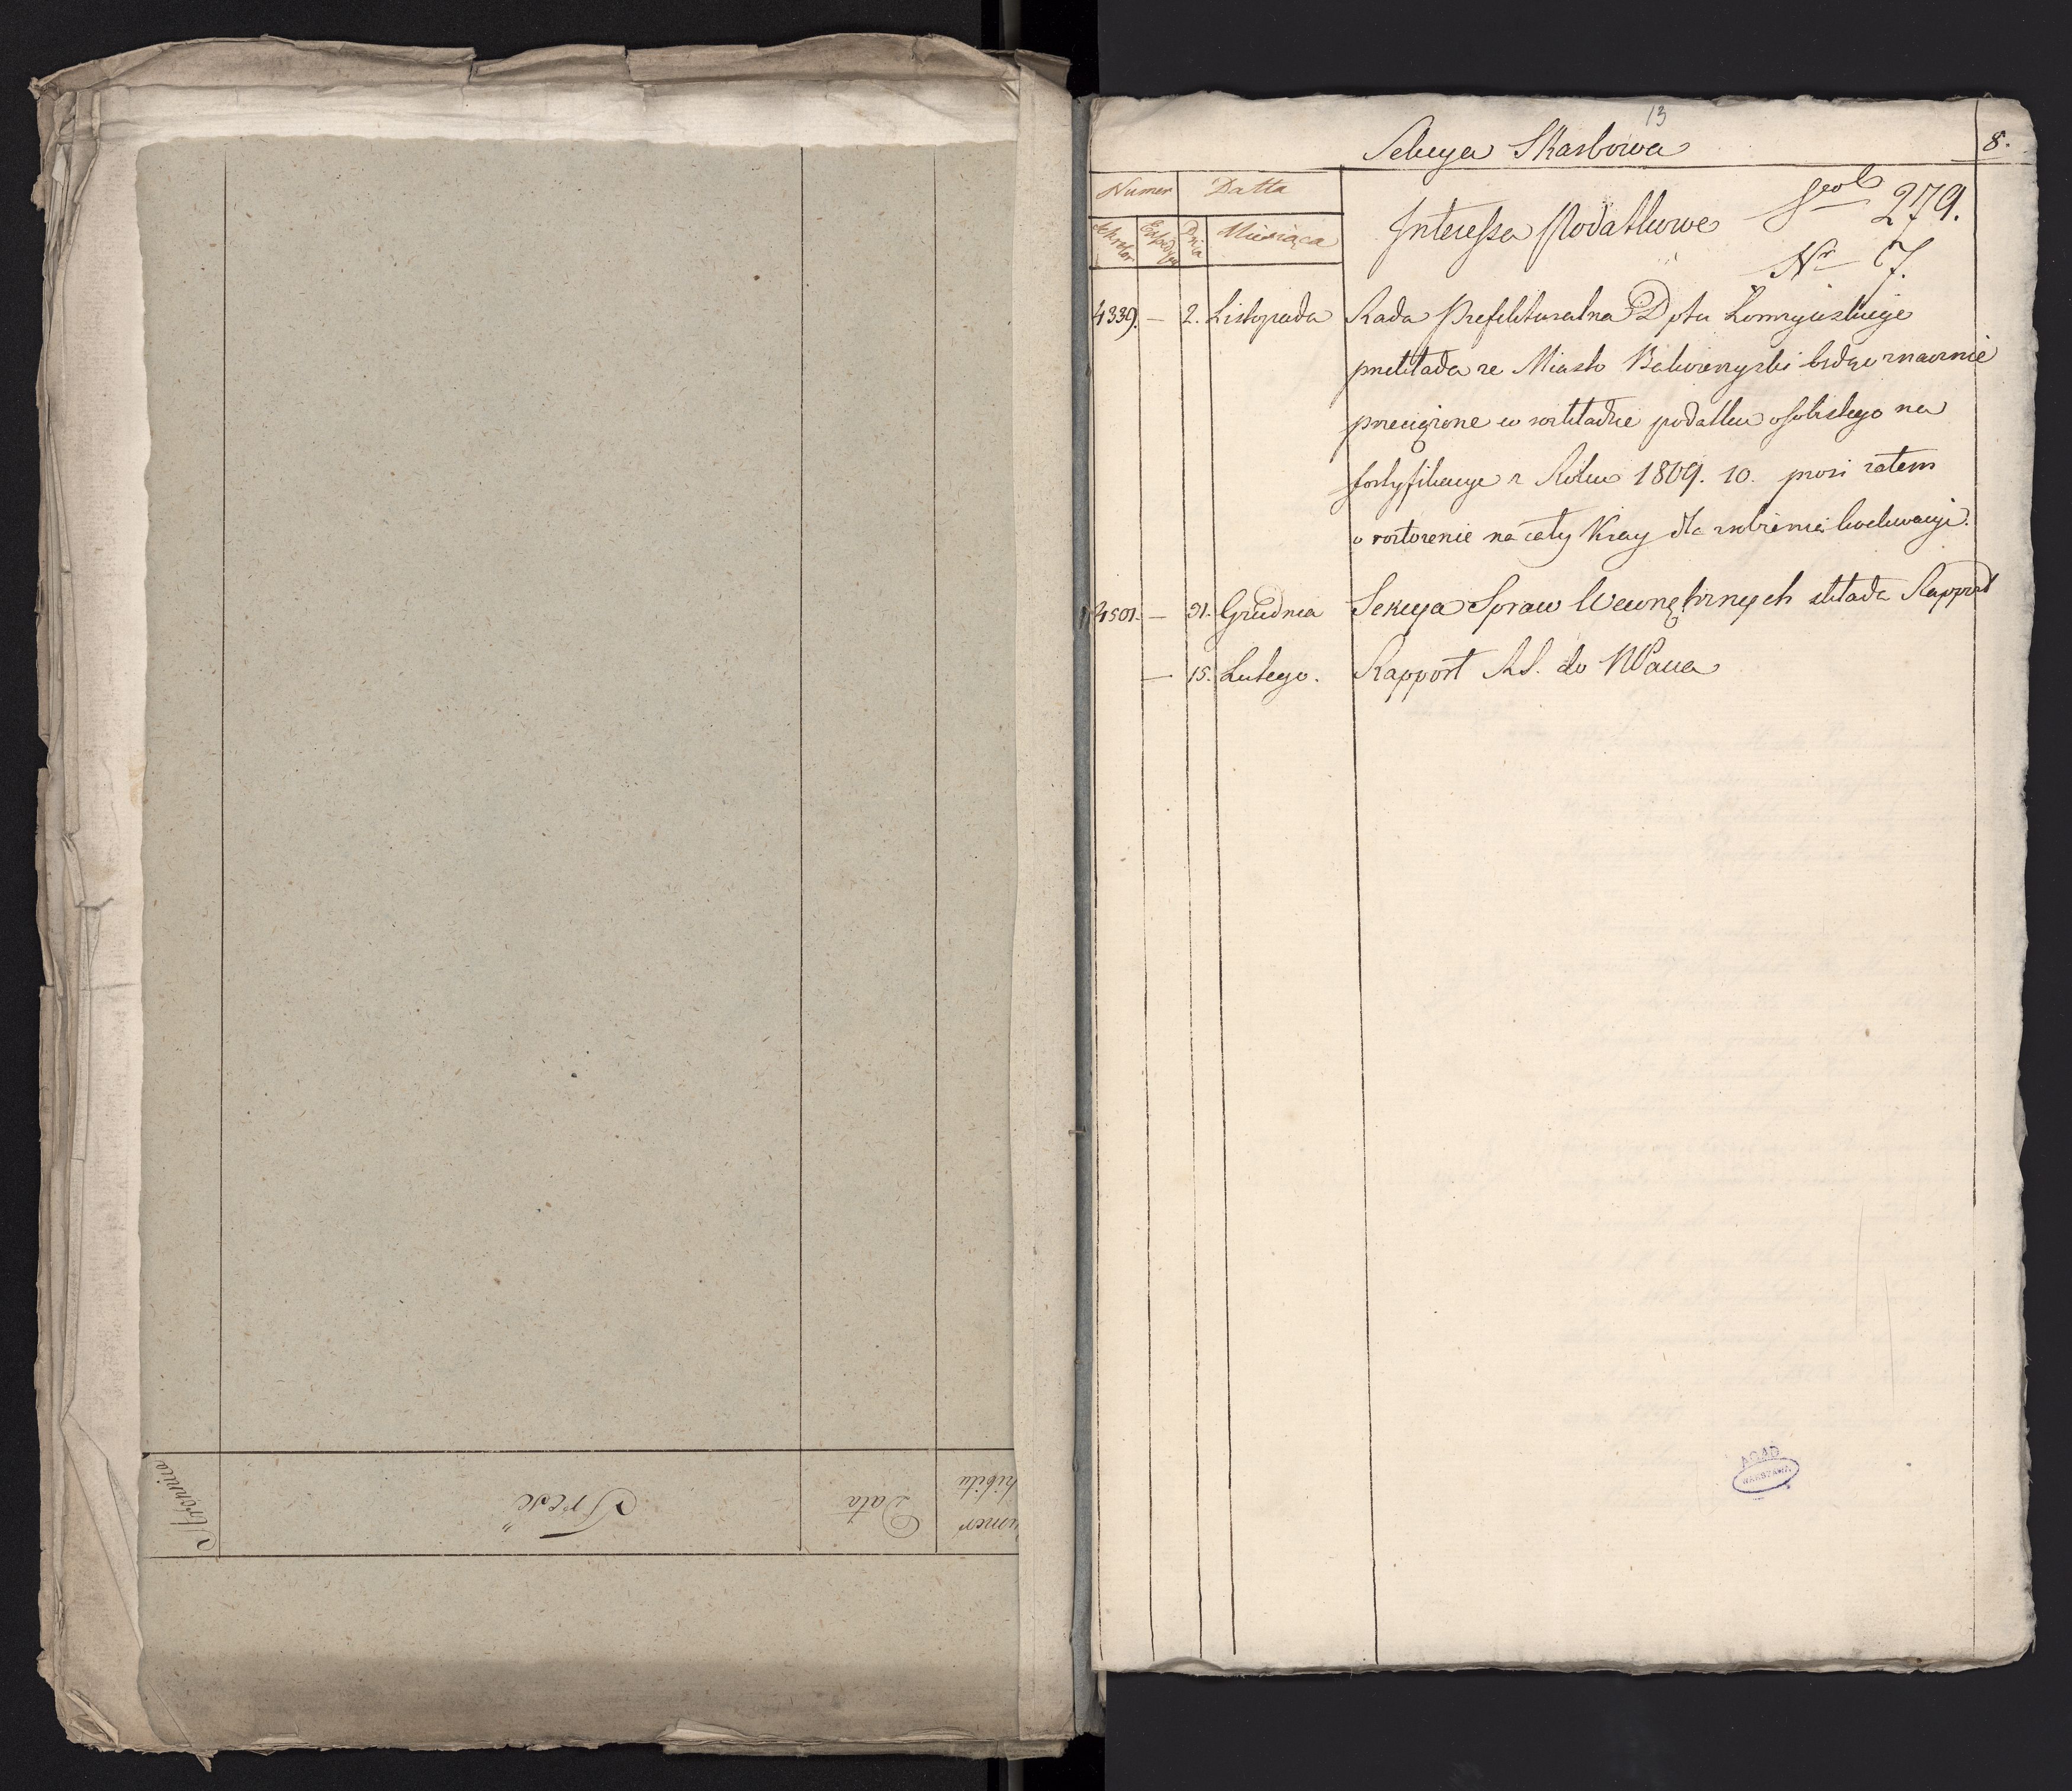 Numer
hibitu
Data
Treść
Stronnica
13
Sekcya Skarbowa
8.
Numer
Datta
Sekretar
Expedycyi
Dnia
Miesiąca
Interessa Podatkowe
279.
Nr 7.
4339. — 2. Listopada Rada Prefekturalna Dptu Łomżyńskiego
przekłada ze Miasto Bakwizryszki będąc znacznie
przeciążone w rozkładzie podatku osobistego na
fortyfikacye z Roku 1809. 10. prosi zatem
o rozłożenie na cały Kray dla zrobienia
4501. — 31. Grudnia Sekcya Spraw Wewnętrznych składa Rapport
— 15. Lutego. Rapport RS. do NPana
AGAD
WARSZAWA